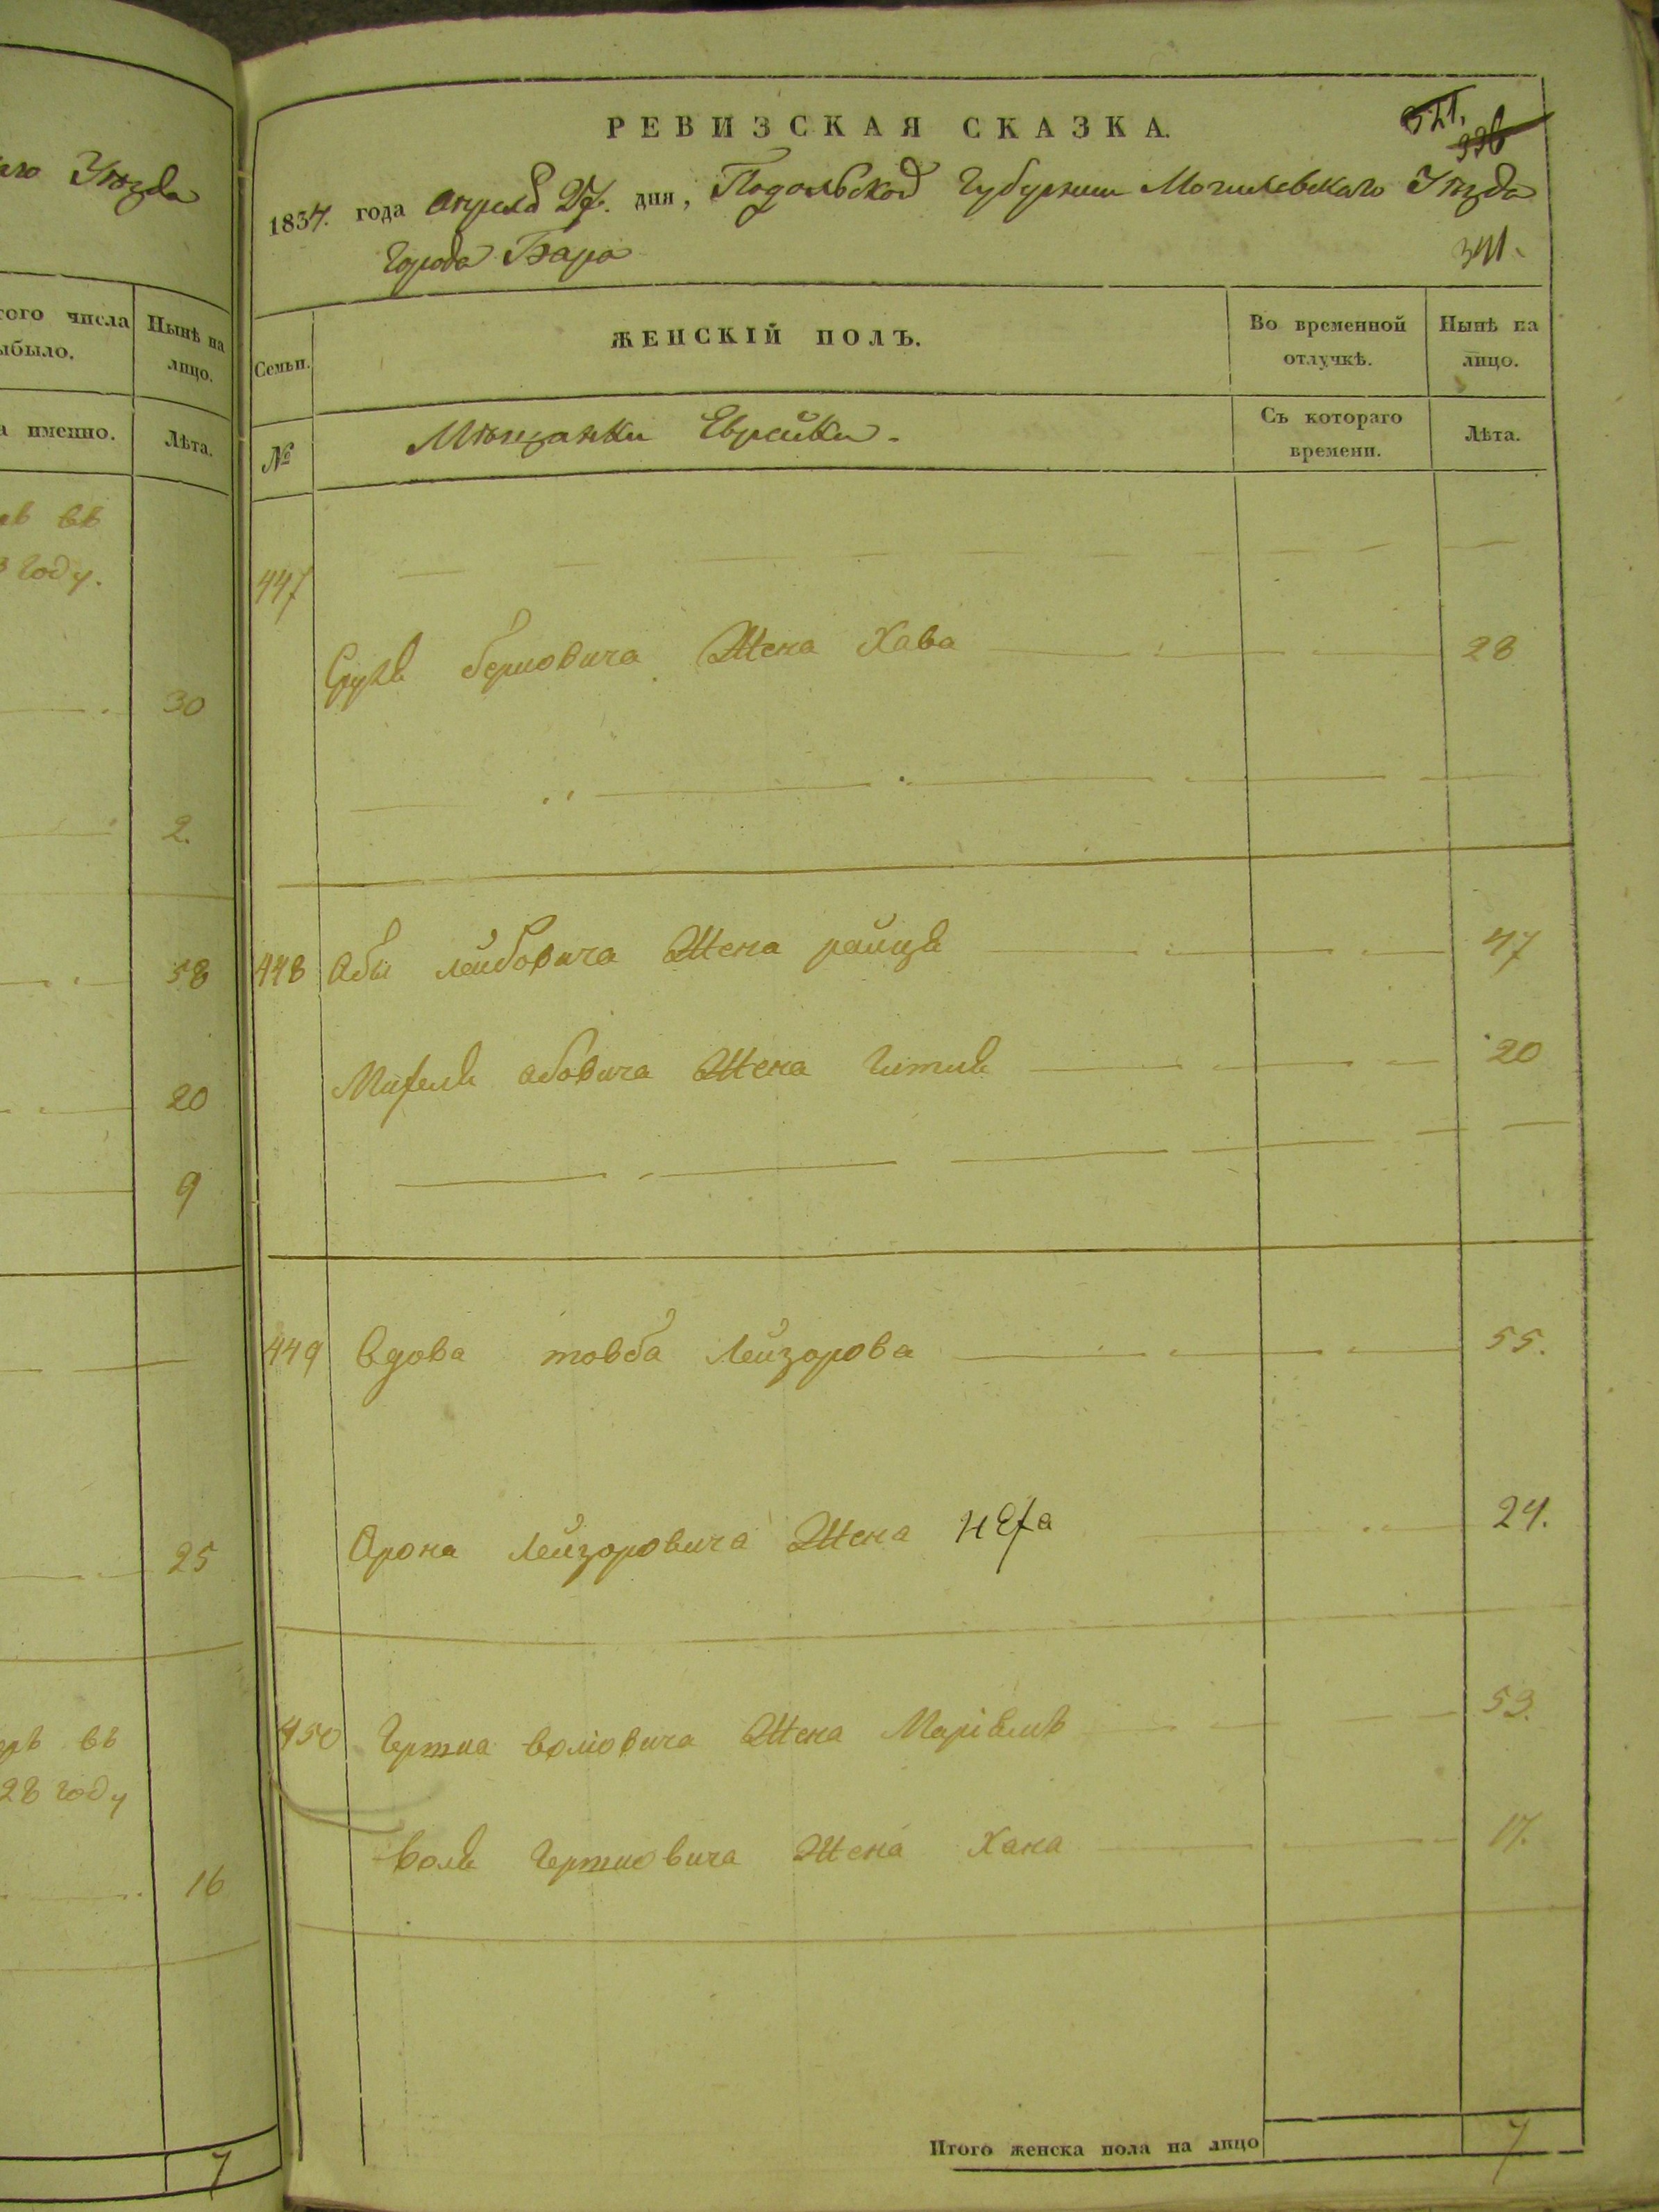 аго Уѣзда
того числа
ыбыло.
Нынѣ на
лицо.
а именно.
Лѣта.
въ
году.
30
2.
58
20
9
25
въ
28 году
16
7
РЕВИЗСКАЯ СКАЗКА.
521.
336
1834. года Апреля 27. дня, Подольской Губернии Могилевскаго Уѣзда
Города Бара
341.
Семьи.
ЖЕНСКІЙ ПОЛЪ.
Во временной
отлучкѣ.
Нынѣ на
лицо.
№
Мѣщанки Еврейки.
Съ котораго
времени.
Лѣта.
447
Сруля берковича Жена Хава 28
448 Абы лейбовича Жена райця 47
абовича Жена Гитля 20
449 Вдова товба Лейзорова 55.
Арона Лейзоровича Жена Неха 24.
450 Гершка волковича Жена 53.
Воля Гершковича Жена Хана 17.
Итого женска пола на лицо 7